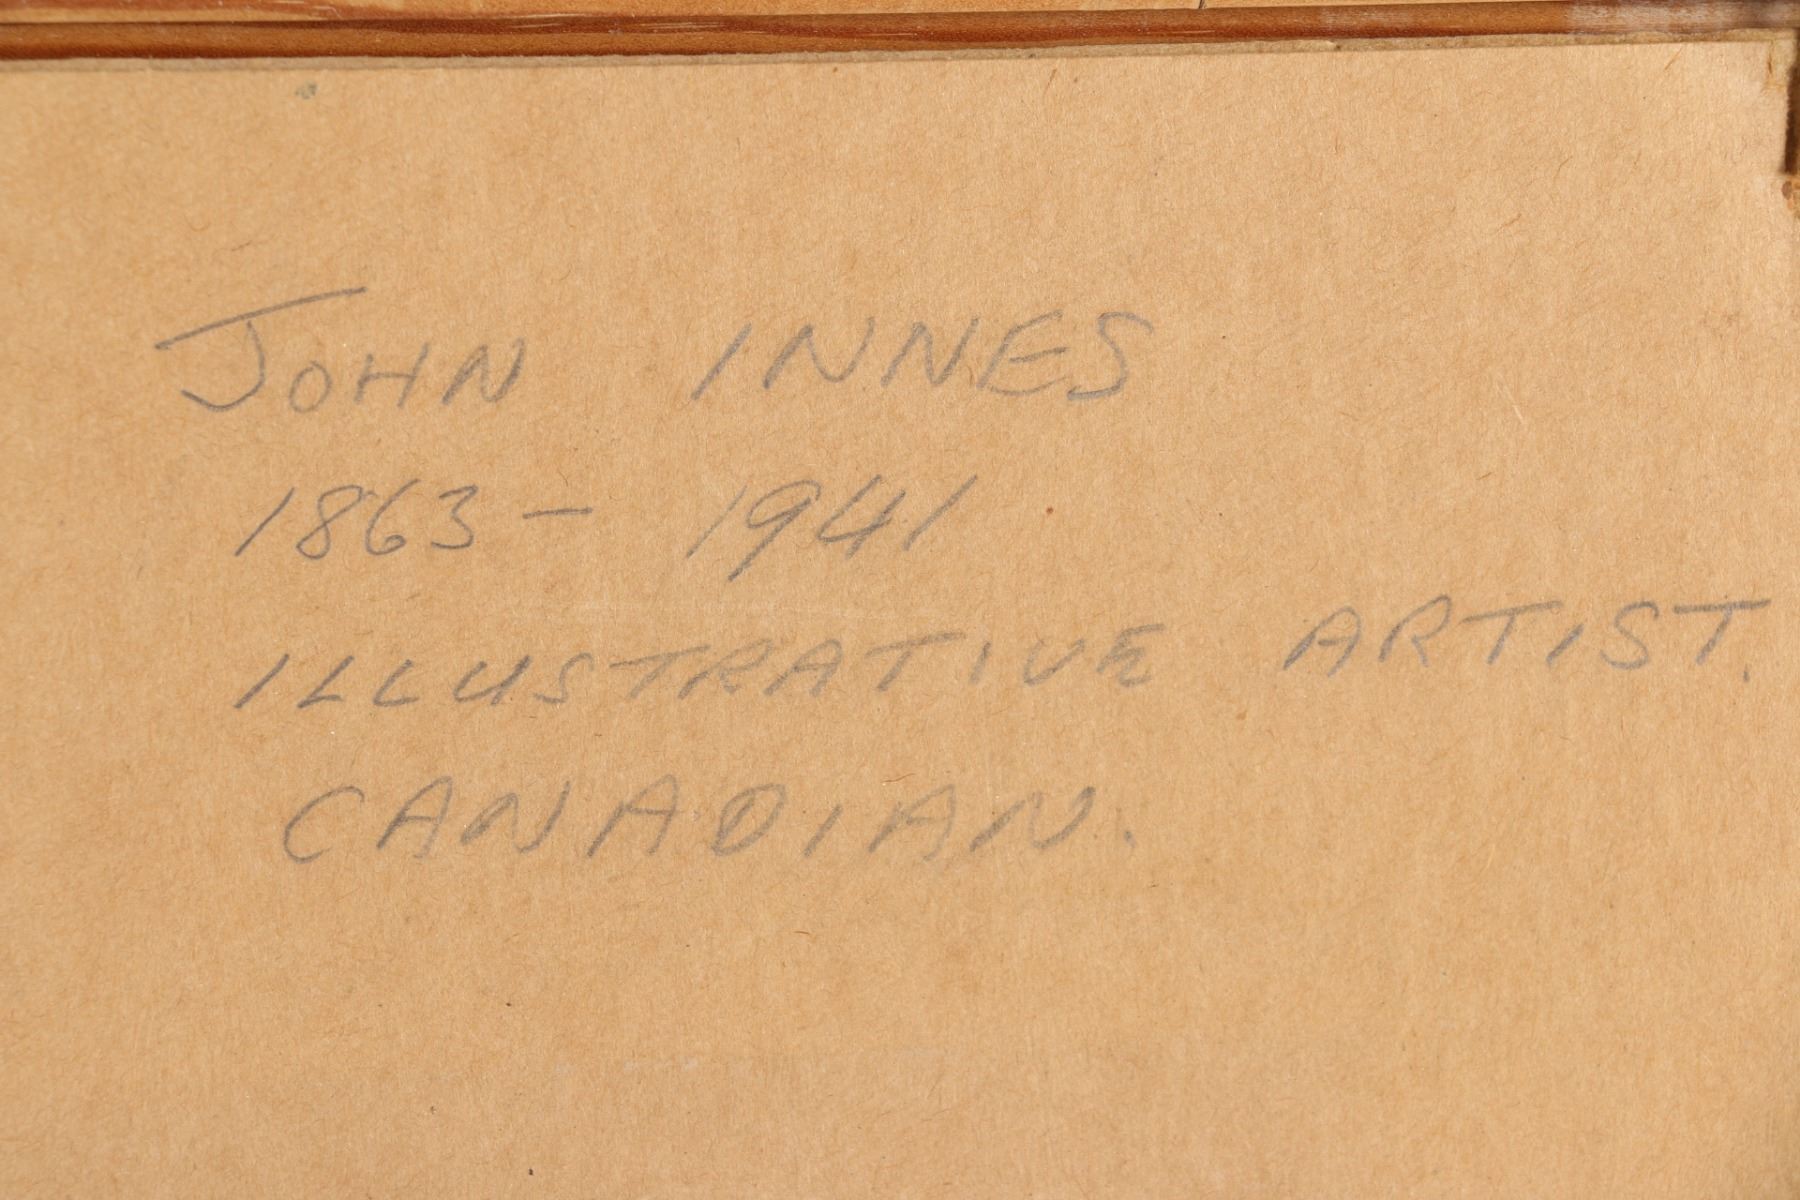 JOHN INNES
1863 - 1941
ILLUSTRATIVE ARTIST.
CANADIAN.